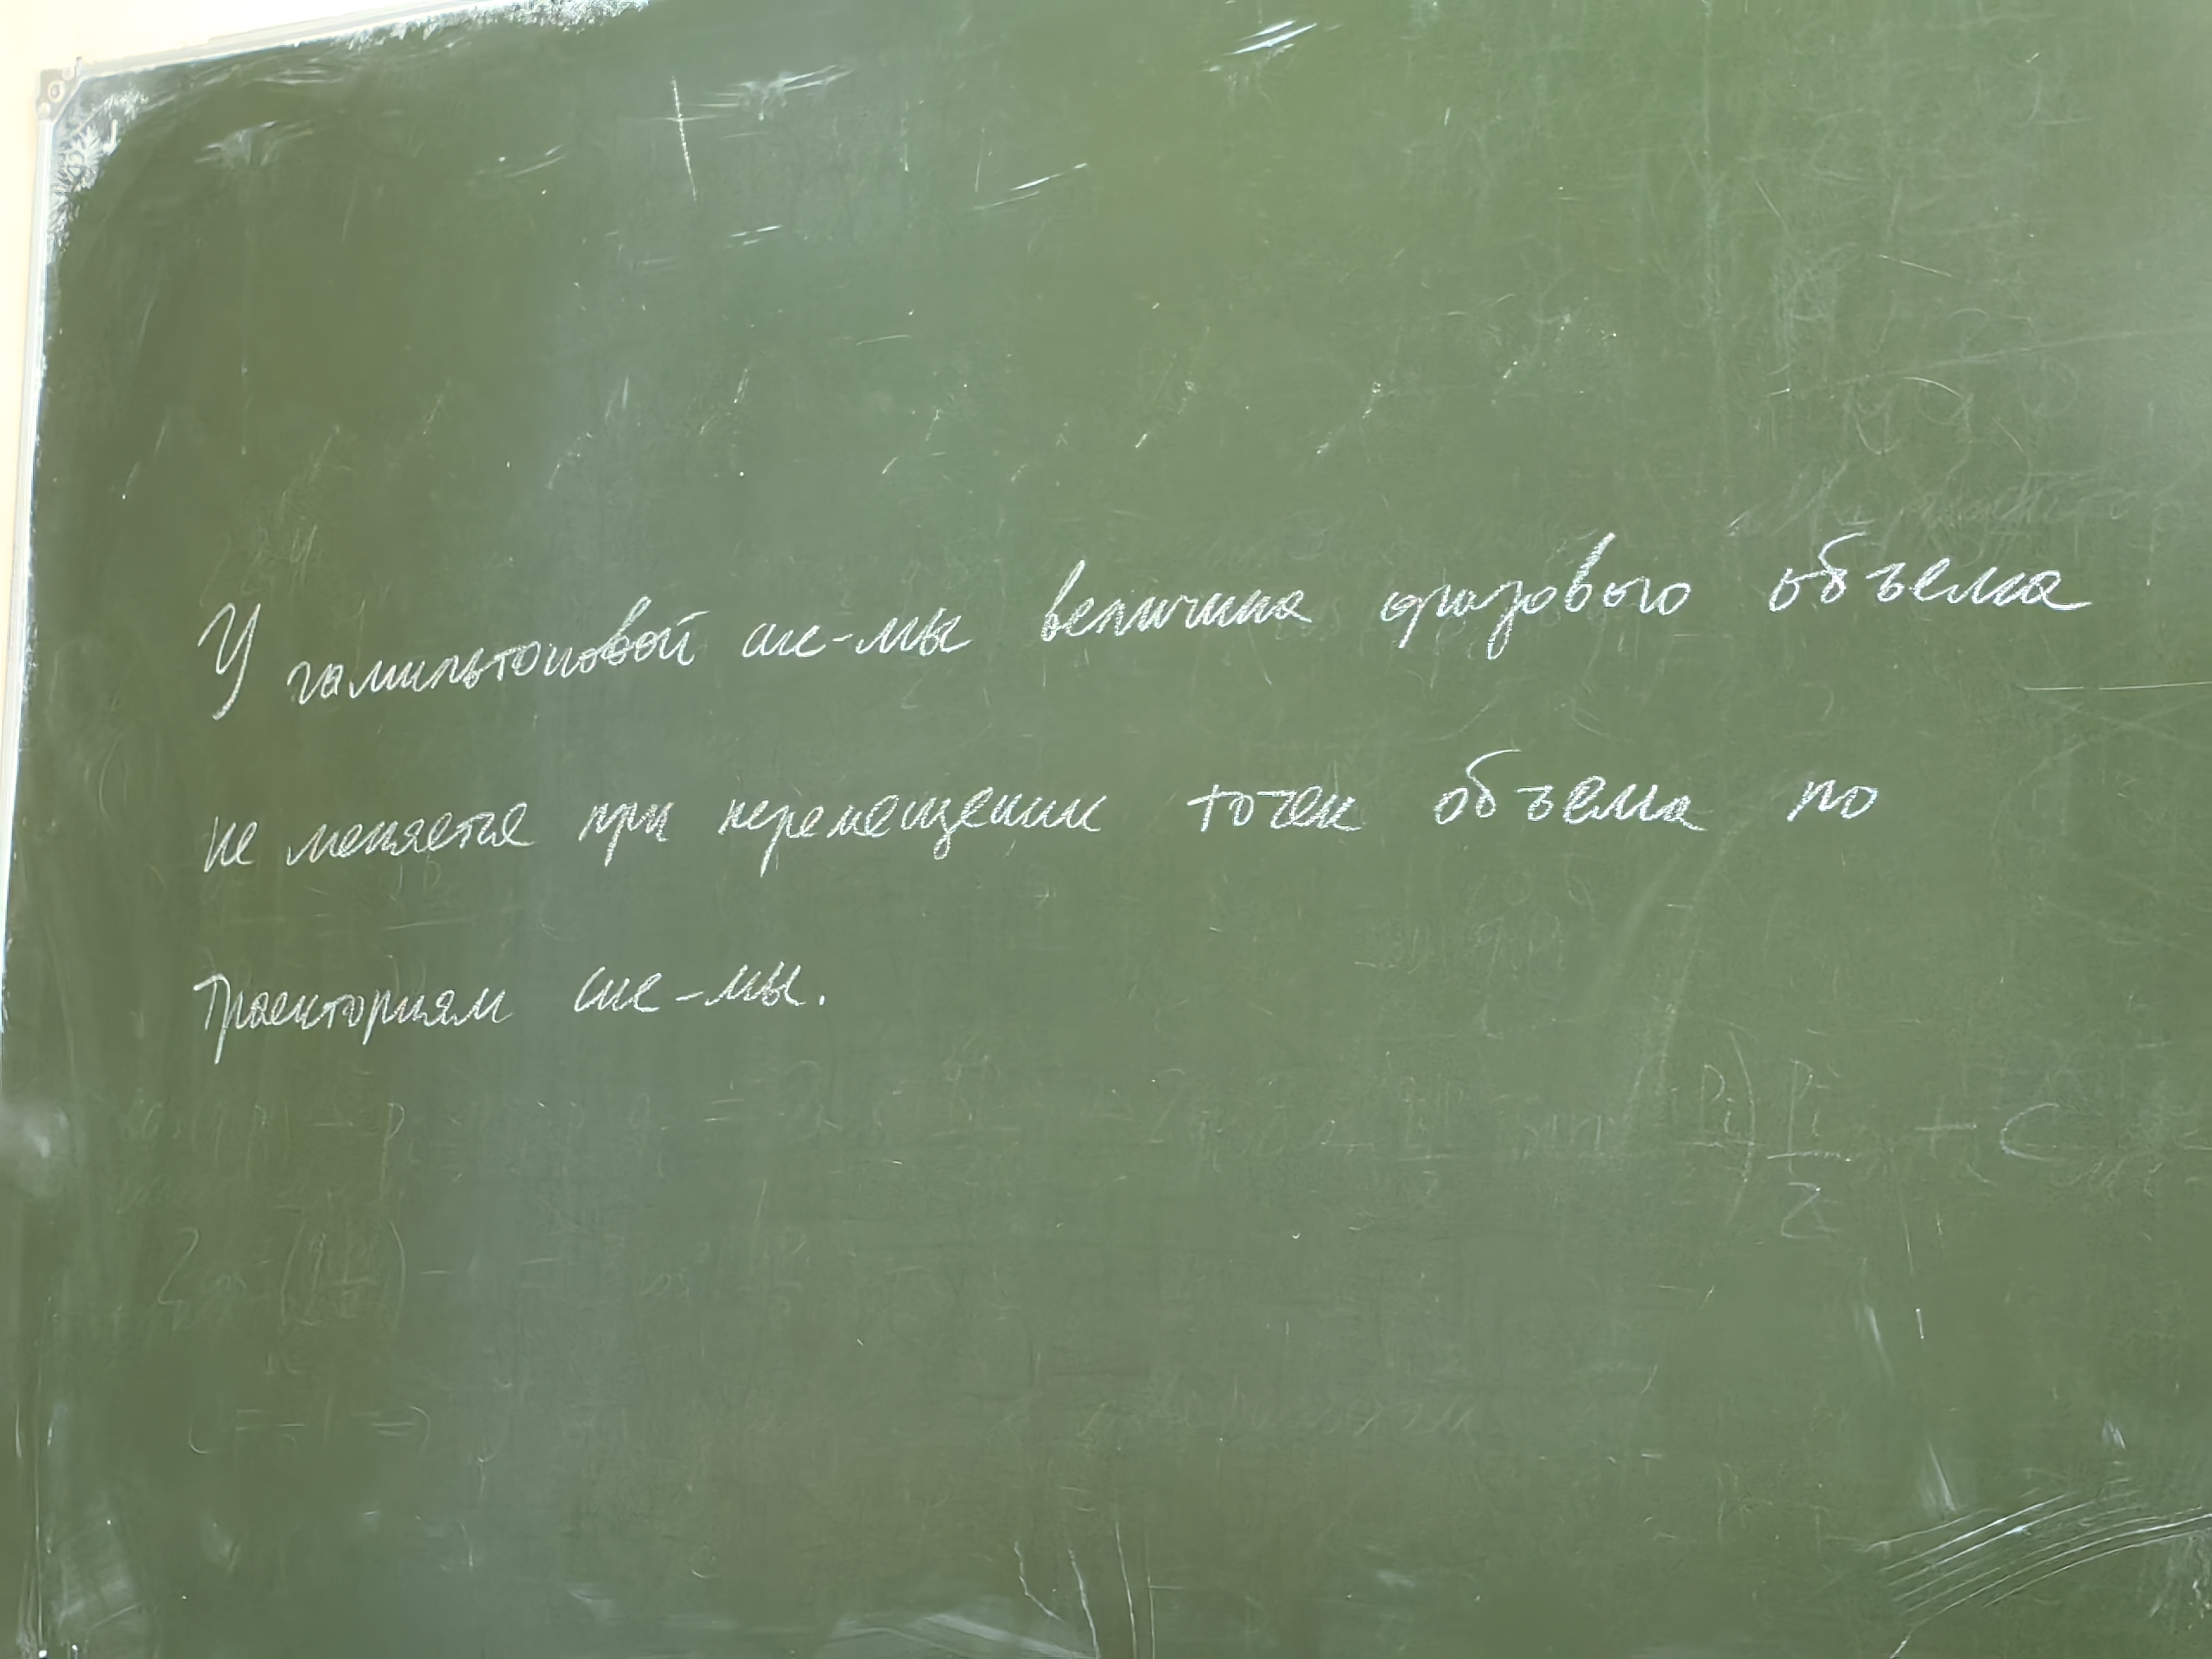 У гамильтоновой сис-мы величина фазового объема
не меняется при перемещении точек объема по
траекториям сис-мы.